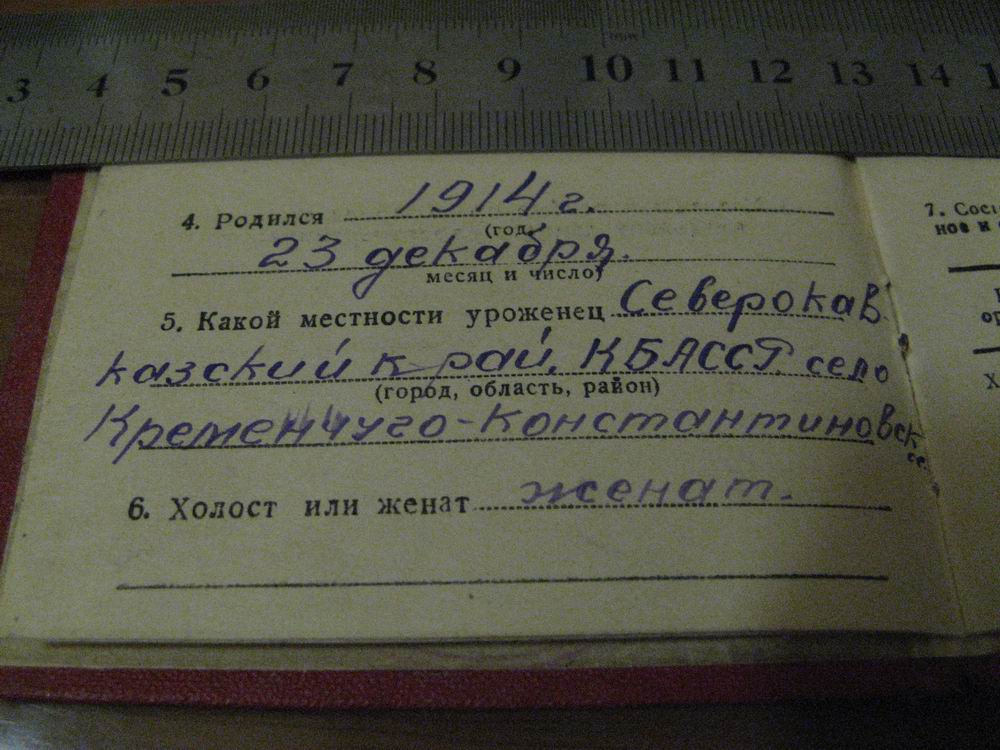 3 4 5 6 7 8 9 10 11 12 13 14
4. Родился 1914 г.
(год,
23 декабря.
месяц и число)
5. Какой местности уроженец Северокав
казский край, КБАССР. село
(город, область, район)
Кременчуго-Константиновск
6. Холост или женат женат.
7.